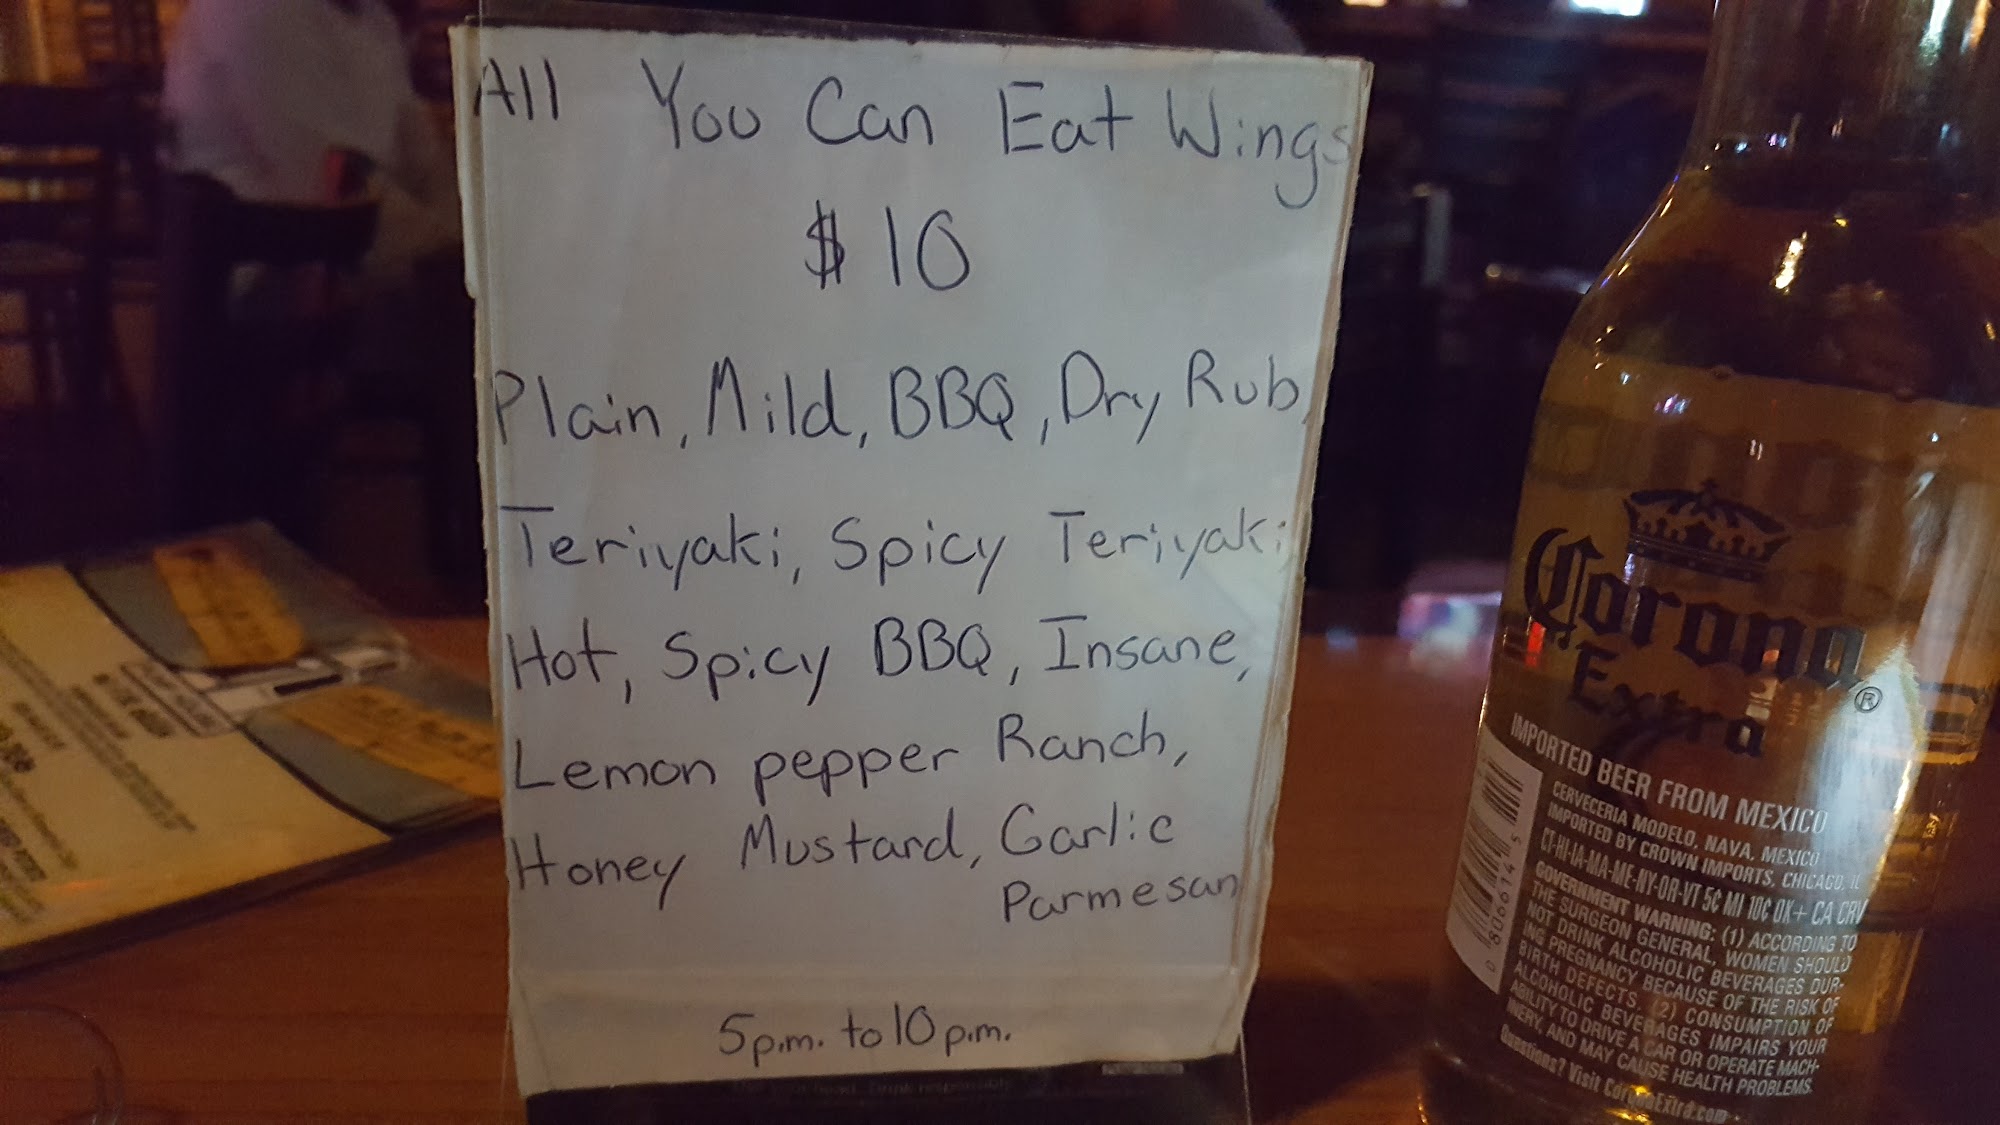 All You Can Eat Wings
$10
Plain, Mild, BBQ, Dry Rub,
Teriyaki, Spicy Teriyaki,
Hot, Spicy BBQ, Insane,
Lemon pepper Ranch,
Honey Mustard, Garlic
Parmesan
5p.m. to 10p.m.
Corona
Extra
®
IMPORTED BEER FROM MEXICO
CERVECERIA MODELO, NAVA, MEXICO
IMPORTED BY CROWN IMPORTS, CHICAGO, IL
CT-HI-IA-MA-ME-NY-OR-VT 5¢ MI 10¢ OK+ CA CRV
GOVERNMENT WARNING: (1) ACCORDING TO
THE SURGEON GENERAL, WOMEN SHOULD
NOT DRINK ALCOHOLIC BEVERAGES DUR-
ING PREGNANCY BECAUSE OF THE RISK OF
BIRTH DEFECTS. (2) CONSUMPTION OF
ALCOHOLIC BEVERAGES IMPAIRS YOUR
ABILITY TO DRIVE A CAR OR OPERATE MACH-
INERY, AND MAY CAUSE HEALTH PROBLEMS.
Questions? Visit CoronaExtra.com